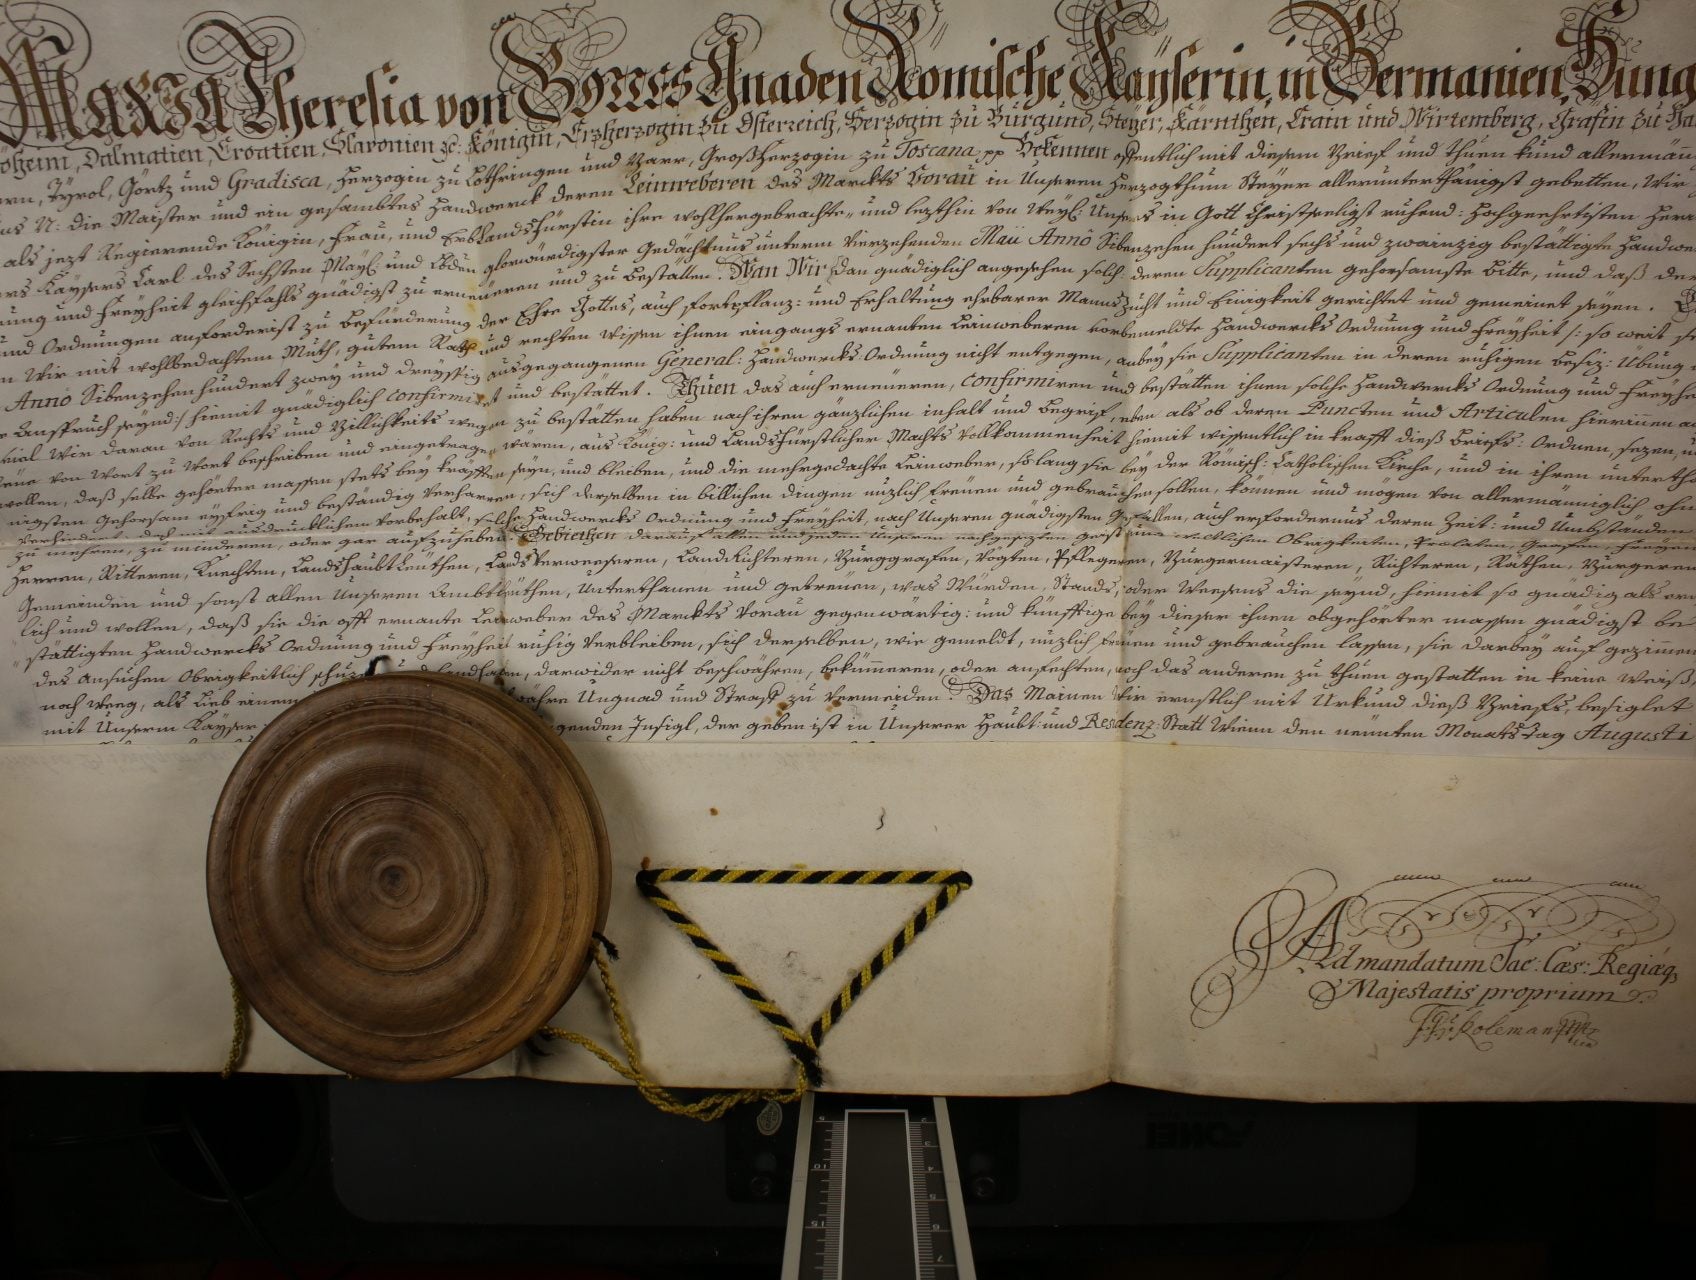 MARIA Theresia von GOTTES Gnaden Römische Kayserin, in Germanien, Hung
öheim, Dalmatien, Croatien, Slavonien ꝛc: Königin, Erzherzogin zu Österreich, Herzogin zu Burgund, Steyer, Kärnthen, Crain und Wirtemberg, Gräfin zu Ha
ern, Tyrol, Görtz und Gradisca, Herzogin zu Lothringen und Barr, Großherzogin zu Toscana pp Bekennen offentlich mit diesem Brief und thuen kund allermän
uns N: die Maister und ein gesambtes Handwerck deren Leinweberen des Marckts Vorau in Unseren Herzogthum Steyer allerunterthänigst gebetten, Wir
als jezt Regierende Königin, Frau, und Erblandsfürstin ihre wohlhergebrachte, und lezthin von Weyl: Unsers in Gott Christseeligst ruhend: Hochgeehrtisten Herrn
ers Kaysers Carl des Sechsten May: und Lbden glorwürdigster Gedächtnus unterm Vierzehenden Maii Anno Sibenzehen hundert sechs und zwainzig bestättigte Handwe
nung und Freyheit gleichfahls gnädigst zu erneueren und zu bestätten. Wan Wir dan gnädiglich angesehen solch deren Supplicanten gehorsamste Bitte, und daß der
und Ordnungen anforderist zu Beförderung der Ehre Gottes, auch fortpflanz: und Erhaltung ehrbarer Manns Zucht und Einigkeit gerichtet und gemeinet seyen.
n Wir mit wohlbedachtem Muth, gutem Rath und rechten wissen ihnen eingangs ernanten Leinweberen vorbemeldte Handwercks Ordnung und Freyheit /: so weit se
Anno Sibenzehenhundert zwey und dreyssig ausgegangenen General: Handwercks: Ordnung nicht entgegen, anbey sie Supplicanten in deren ruhigen Besiz: Übung
Anspruch seynd :/ hiemit gnädiglich confirmiret und bestättet. Thuen das auch erneueren, confirmiren und bestätten ihnen solche Handwercks Ordnung und Freyhe
vial Wir daran von Rechts und Billichkeits wegen zu bestätten haben nach ihren gänzlichen inhalt und begrif, eben als ob deren Puncten und Articulen hierinnen
von Wort zu Wort beschriben und eingetragen wären, aus König: und Landsfürstlicher Machts Vollkommenheit hiemit wissentlich in krafft diß briefs: Ordnen, sezen, u
wollen, daß selbe gehörter massen stets bey kräfften seyn, und bleiben, und die mehrgedachte Leinweber, so lang sie bey der Römisch: Catholischen Kirche, und in ihren untertha
nigsten Gehorsam eyfrig und beständig verharren, sich derselben in billichen dingen nuzlich freuen und gebrauchen sollen, können und mögen von allermänniglich ohn
Verhindert, doch mit ausdrücklichem Vorbehalt, solche Handwercks Ordnung und Freyheit, nach Unseren gnädigsten Gefallen, auch erfordernus deren Zeit: und Umbständen
zu mehren, zu minderen, oder gar aufzuheben. Gebiethen darauf allen und jeden Unseren nachgesezten geist: und weltlichen Obrigkeiten, Prælaten, Grafen, Freyen
Herren, Ritteren, Knechten, Landshaubt Leüthen, Lands Verweeseren, Land Richteren, Burggrafen, Vögten, Pflegeren, Burgermaisteren, Richteren, Räthen, Burgeren
Gemeinden und sonst allen Unseren Ambtleüthen, Unterthanen und getreuen, was Würden, Stands, oder Weesens die seynd, hiemit so gnädig als ern
lich und wollen, daß sie die offt ernante Leinweber des Marckts Vorau gegenwärtig: und künfftige bey dieser ihnen obgehörter massen gnädigst be
stättigten Handwercks Ordnung und Freyheit ruhig verbleiben, sich derselben, wie gemeldt, nuzlich freuen und gebrauchen lassen, sie darbey auf gezimmen
des ansuchen Obrigkeitlich schuz und handhaben, darwider nicht beschwähren, bekümmeren, oder anfechten, noch das anderen zu thuen gestatten in keine weiß,
noch weeg, als lieb einem schwähre Ungnad und Straff zu vermeiden. Das Mainen Wir ernstlich mit Urkund diß Briefs, besiglet
mit Unserm Kayser genden Insigl, der geben ist in Unserer Haubt: und Residenz: Statt Wienn den neünten Monats tag Augusti
Ad mandatum Sac: Cæs: Regiæq
Majestatis proprium
Koleman